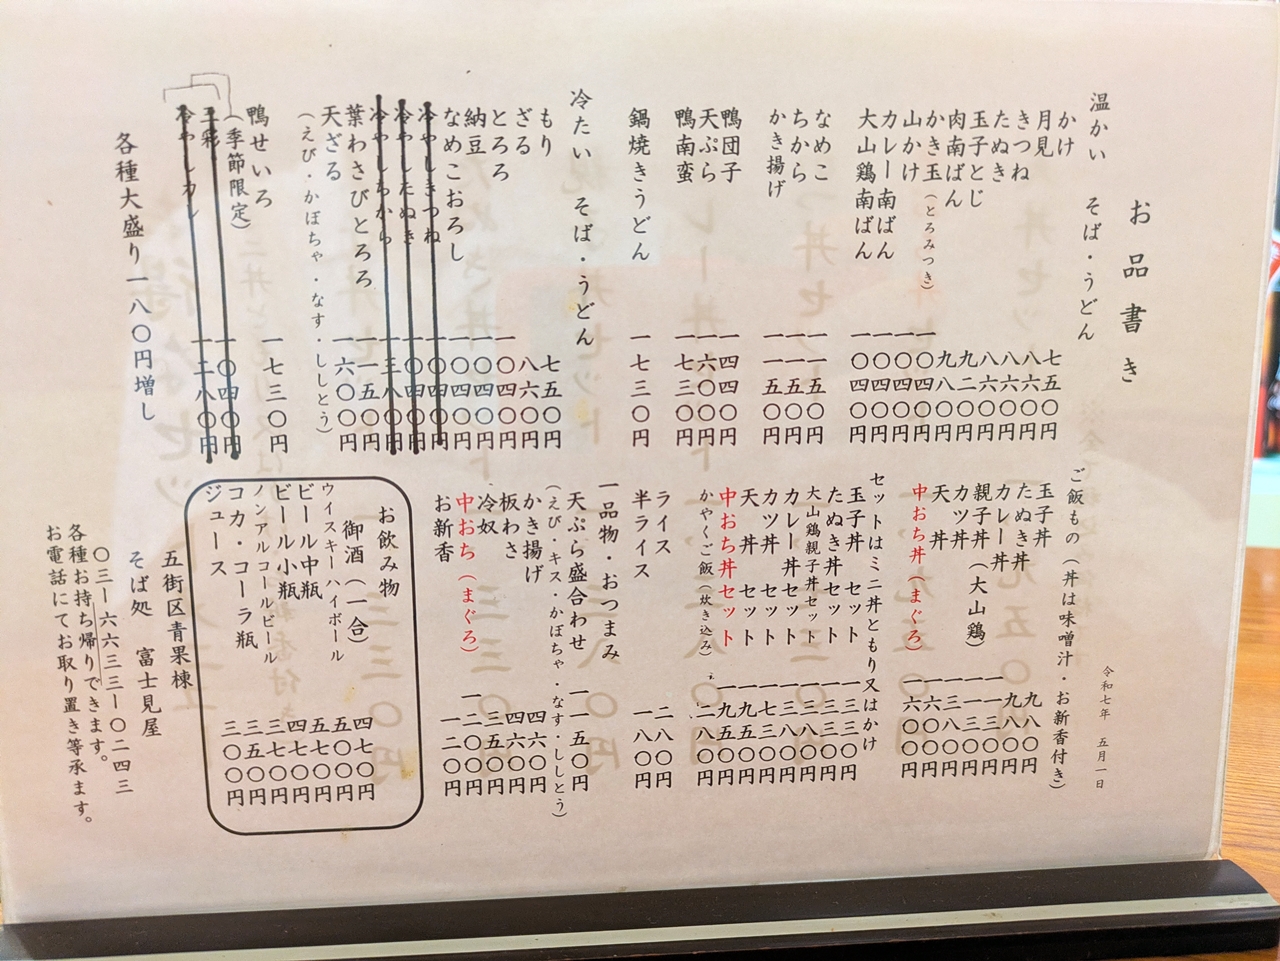 お品書き
令和七年 五月一日
温かい そば・うどん
かけ 七五〇円
月見 八六〇円
きつね 八六〇円
たぬき 八六〇円
玉子とじ 九二〇円
肉南ばん 九八〇円
かき玉(とろみつき) 一〇四〇円
山かけ 一〇四〇円
カレー南ばん 一〇四〇円
大山鶏南ばん 一〇四〇円
なめこ 一一五〇円
ちから 一一五〇円
かき揚げ 一一五〇円
鴨団子 一四四〇円
天ぷら 一六〇〇円
鴨南蛮 一七三〇円
鍋焼きうどん 一七三〇円
冷たい そば・うどん
もり 七五〇円
ざる 八六〇円
とろろ 一〇四〇円
納豆 一〇四〇円
なめこおろし 一〇四〇円
冷やしきつね 一〇四〇円
冷やしたぬき 一〇四〇円
冷やしちから 一三八〇円
葉わさびとろろ 一一五〇円
天ざる 一六〇〇円
(えび・かぼちゃ・なす・ししとう)
鴨せいろ 一七三〇円
(季節限定)
三彩 一〇四〇円
冷やしカレー 一二八〇円
各種大盛り一八〇円増し
ご飯もの(丼は味噌汁・お新香付き)
玉子丼 九八〇円
たぬき丼 九八〇円
カレー丼 一一三〇円
親子丼(大山鶏) 一一三〇円
カツ丼 一三八〇円
天丼 一六〇〇円
中おち丼(まぐろ) 一六〇〇円
セットはミニ丼ともり又はかけ
玉子丼 セット 一三三〇円
たぬき丼セット 一三三〇円
大山鶏親子丼セット 一三八〇円
カレー丼セット 一三八〇円
カツ丼 セット 一七三〇円
天丼 セット 一九五〇円
中おち丼セット 一九五〇円
かやくご飯(炊き込み) 一二八〇円
ライス 二八〇円
半ライス 一八〇円
一品物・おつまみ
天ぷら盛合わせ 一一五〇円
(えび・キス・かぼちゃ・なす・ししとう)
かき揚げ 四六〇円
板わさ 四六〇円
冷奴 三五〇円
中おち(まぐろ) 一二〇〇円
お新香 一二〇円
お飲み物
御酒(一合) 四七〇円
ウイスキーハイボール 五〇〇円
ビール中瓶 五七〇円
ビール小瓶 四七〇円
ノンアルコールビール 三七〇円
コカ・コーラ瓶 三五〇円
ジュース 三〇〇円
五街区青果棟
そば処 富士見屋
〇三ー六六三三ー〇二四三
各種お持ち帰りできます。
お電話にてお取り置き等承ます。